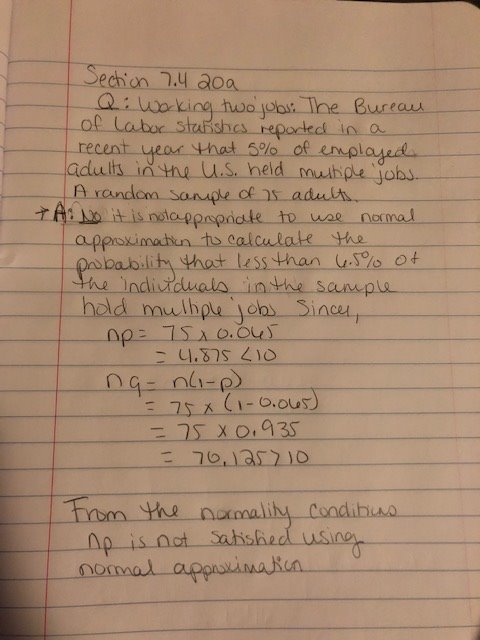 Section 7.4 20a
Q: Working two jobs: The Bureau
of Labor Statistics reported in a
recent year that 5% of employed
adults in the U.S. held multiple jobs.
A random sample of 75 adults.
→ A: No it is not appropriate to use normal
approximation to calculate the
probability that less than 6.5% of
the individuals in the sample
hold multiple jobs Since,
np = 75 x 0.065
= 4.875 < 10
nq = n(1-p)
= 75 x (1-0.065)
= 75 x 0.935
= 70.125 > 10
From the normality conditions
np is not satisfied using
normal approximation